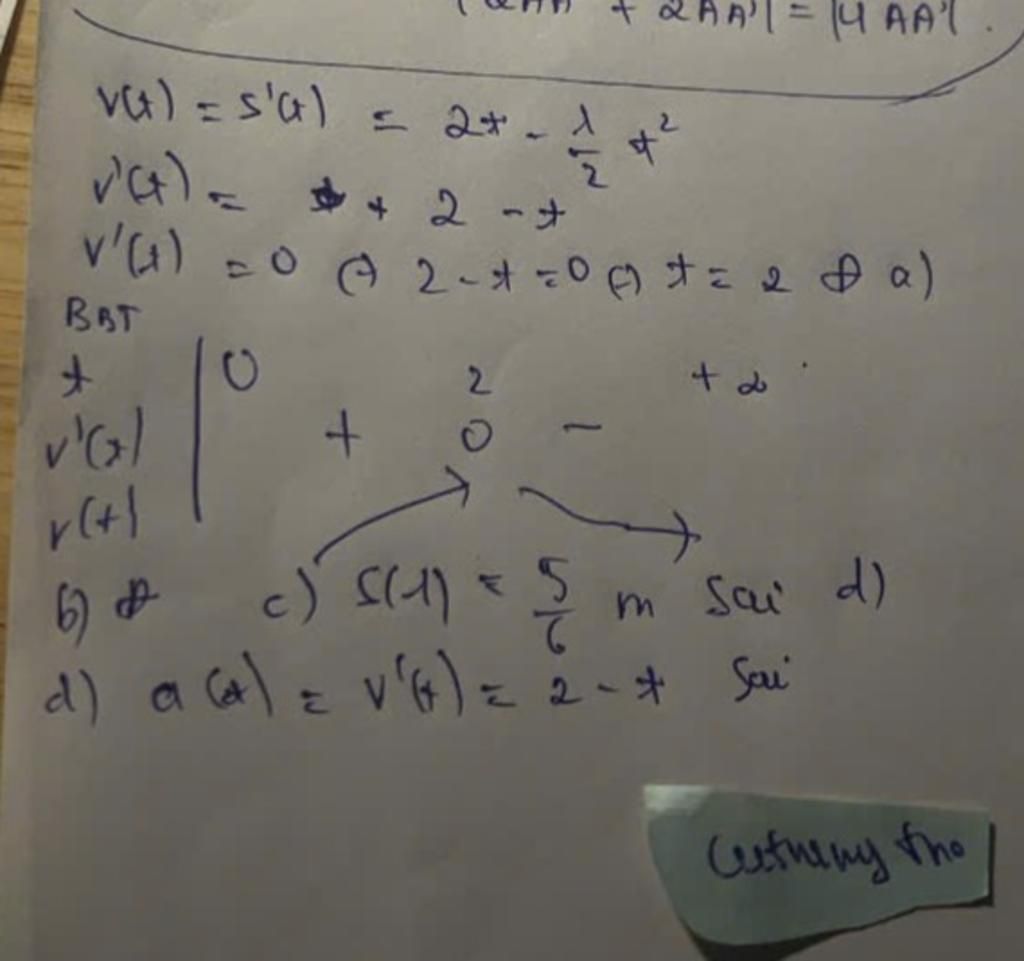 + 2AA'| = |4 AA'|.
v(t) = s'(t) = 2t - 1/2 t²
v'(t) = + 2 - t
v'(t) = 0 (=) 2 - t = 0 (=) t = 2 Đ a)
BBT
t | 0 2 +∞
v'(t) + 0 -
v(t)
b) Đ c) S(1) = 5/6 m Sai d)
d) a(t) = v'(t) = 2 - t Sai